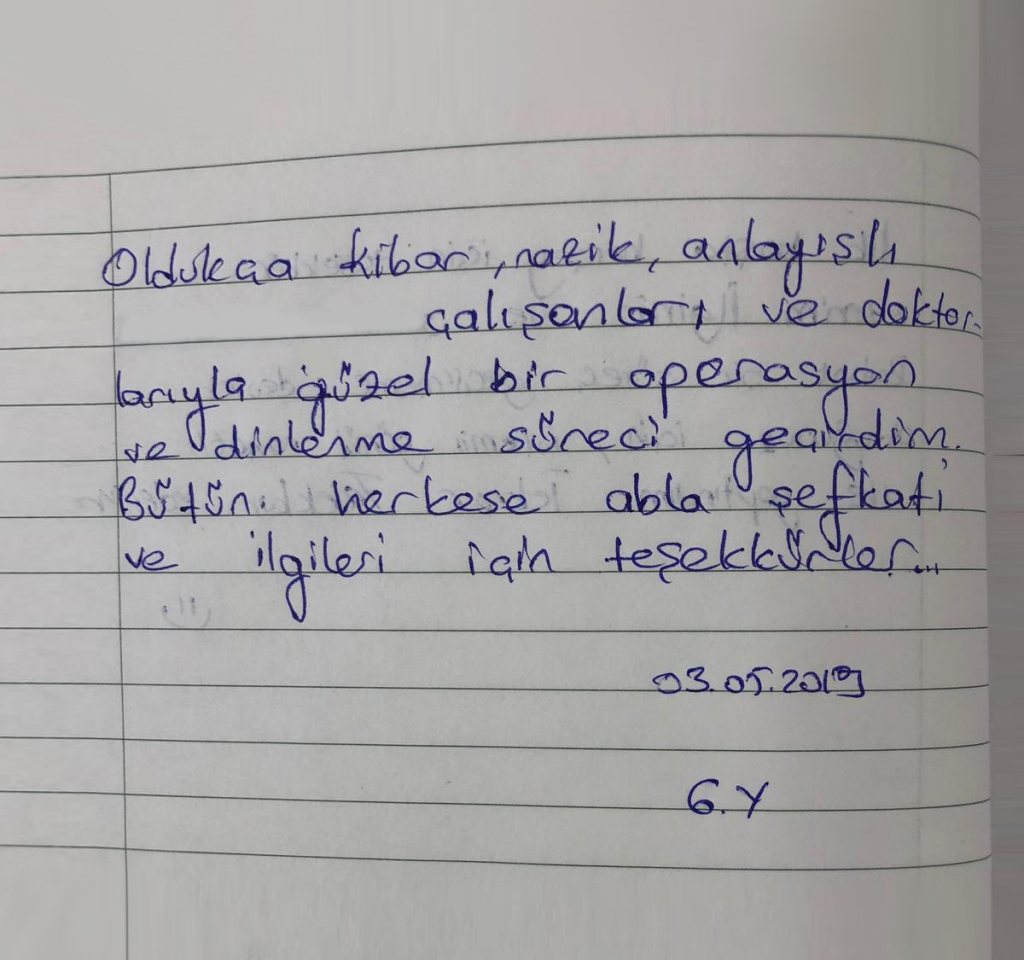 Oldukça kibar, nazik, anlayışlı
çalışanları ve doktor-
larıyla güzel bir operasyon
ve dinlenme süreci geçirdim.
Bütün herkese abla şefkati
ve ilgileri için teşekkürler...
03.05.2019
G.Y